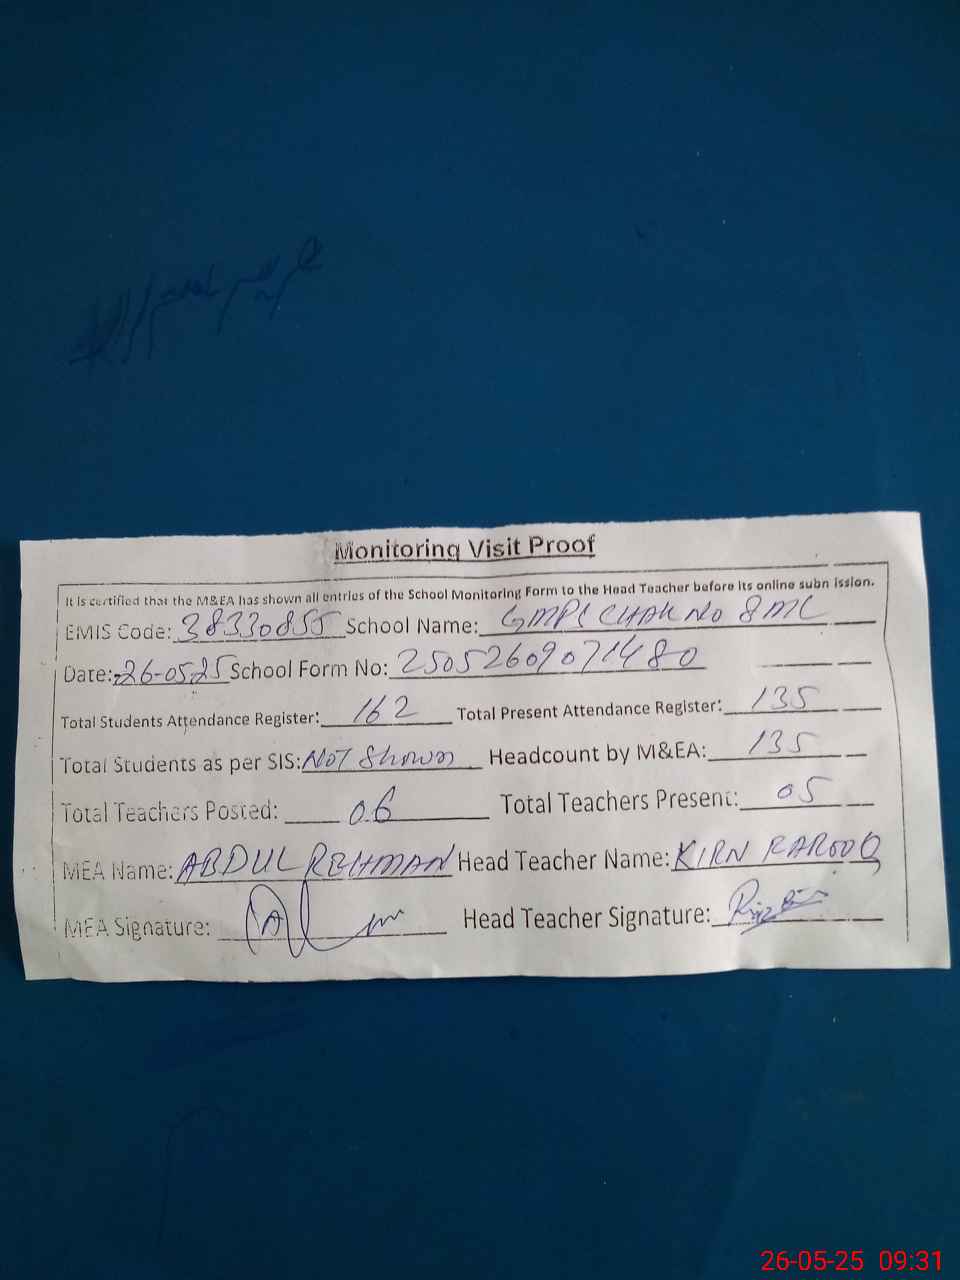 Monitoring Visit Proof
It is certified that the M&EA has shown all entries of the School Monitoring Form to the Head Teacher before its online subn ission.
EMIS Code: 38330855 School Name: GMPS CHAK NO 8 MC
Date: 26-05.25 School Form No: 25052609071480
Total Students Attendance Register: 162 Total Present Attendance Register: 135
Total Students as per SIS: NOT Shown Headcount by M&EA: 135
Total Teachers Posted: 06 Total Teachers Present: 05
MEA Name: ABDUL REHMAN Head Teacher Name: KIRN FAROOQ
MEA Signature: Head Teacher Signature:
26-05-25 09:31